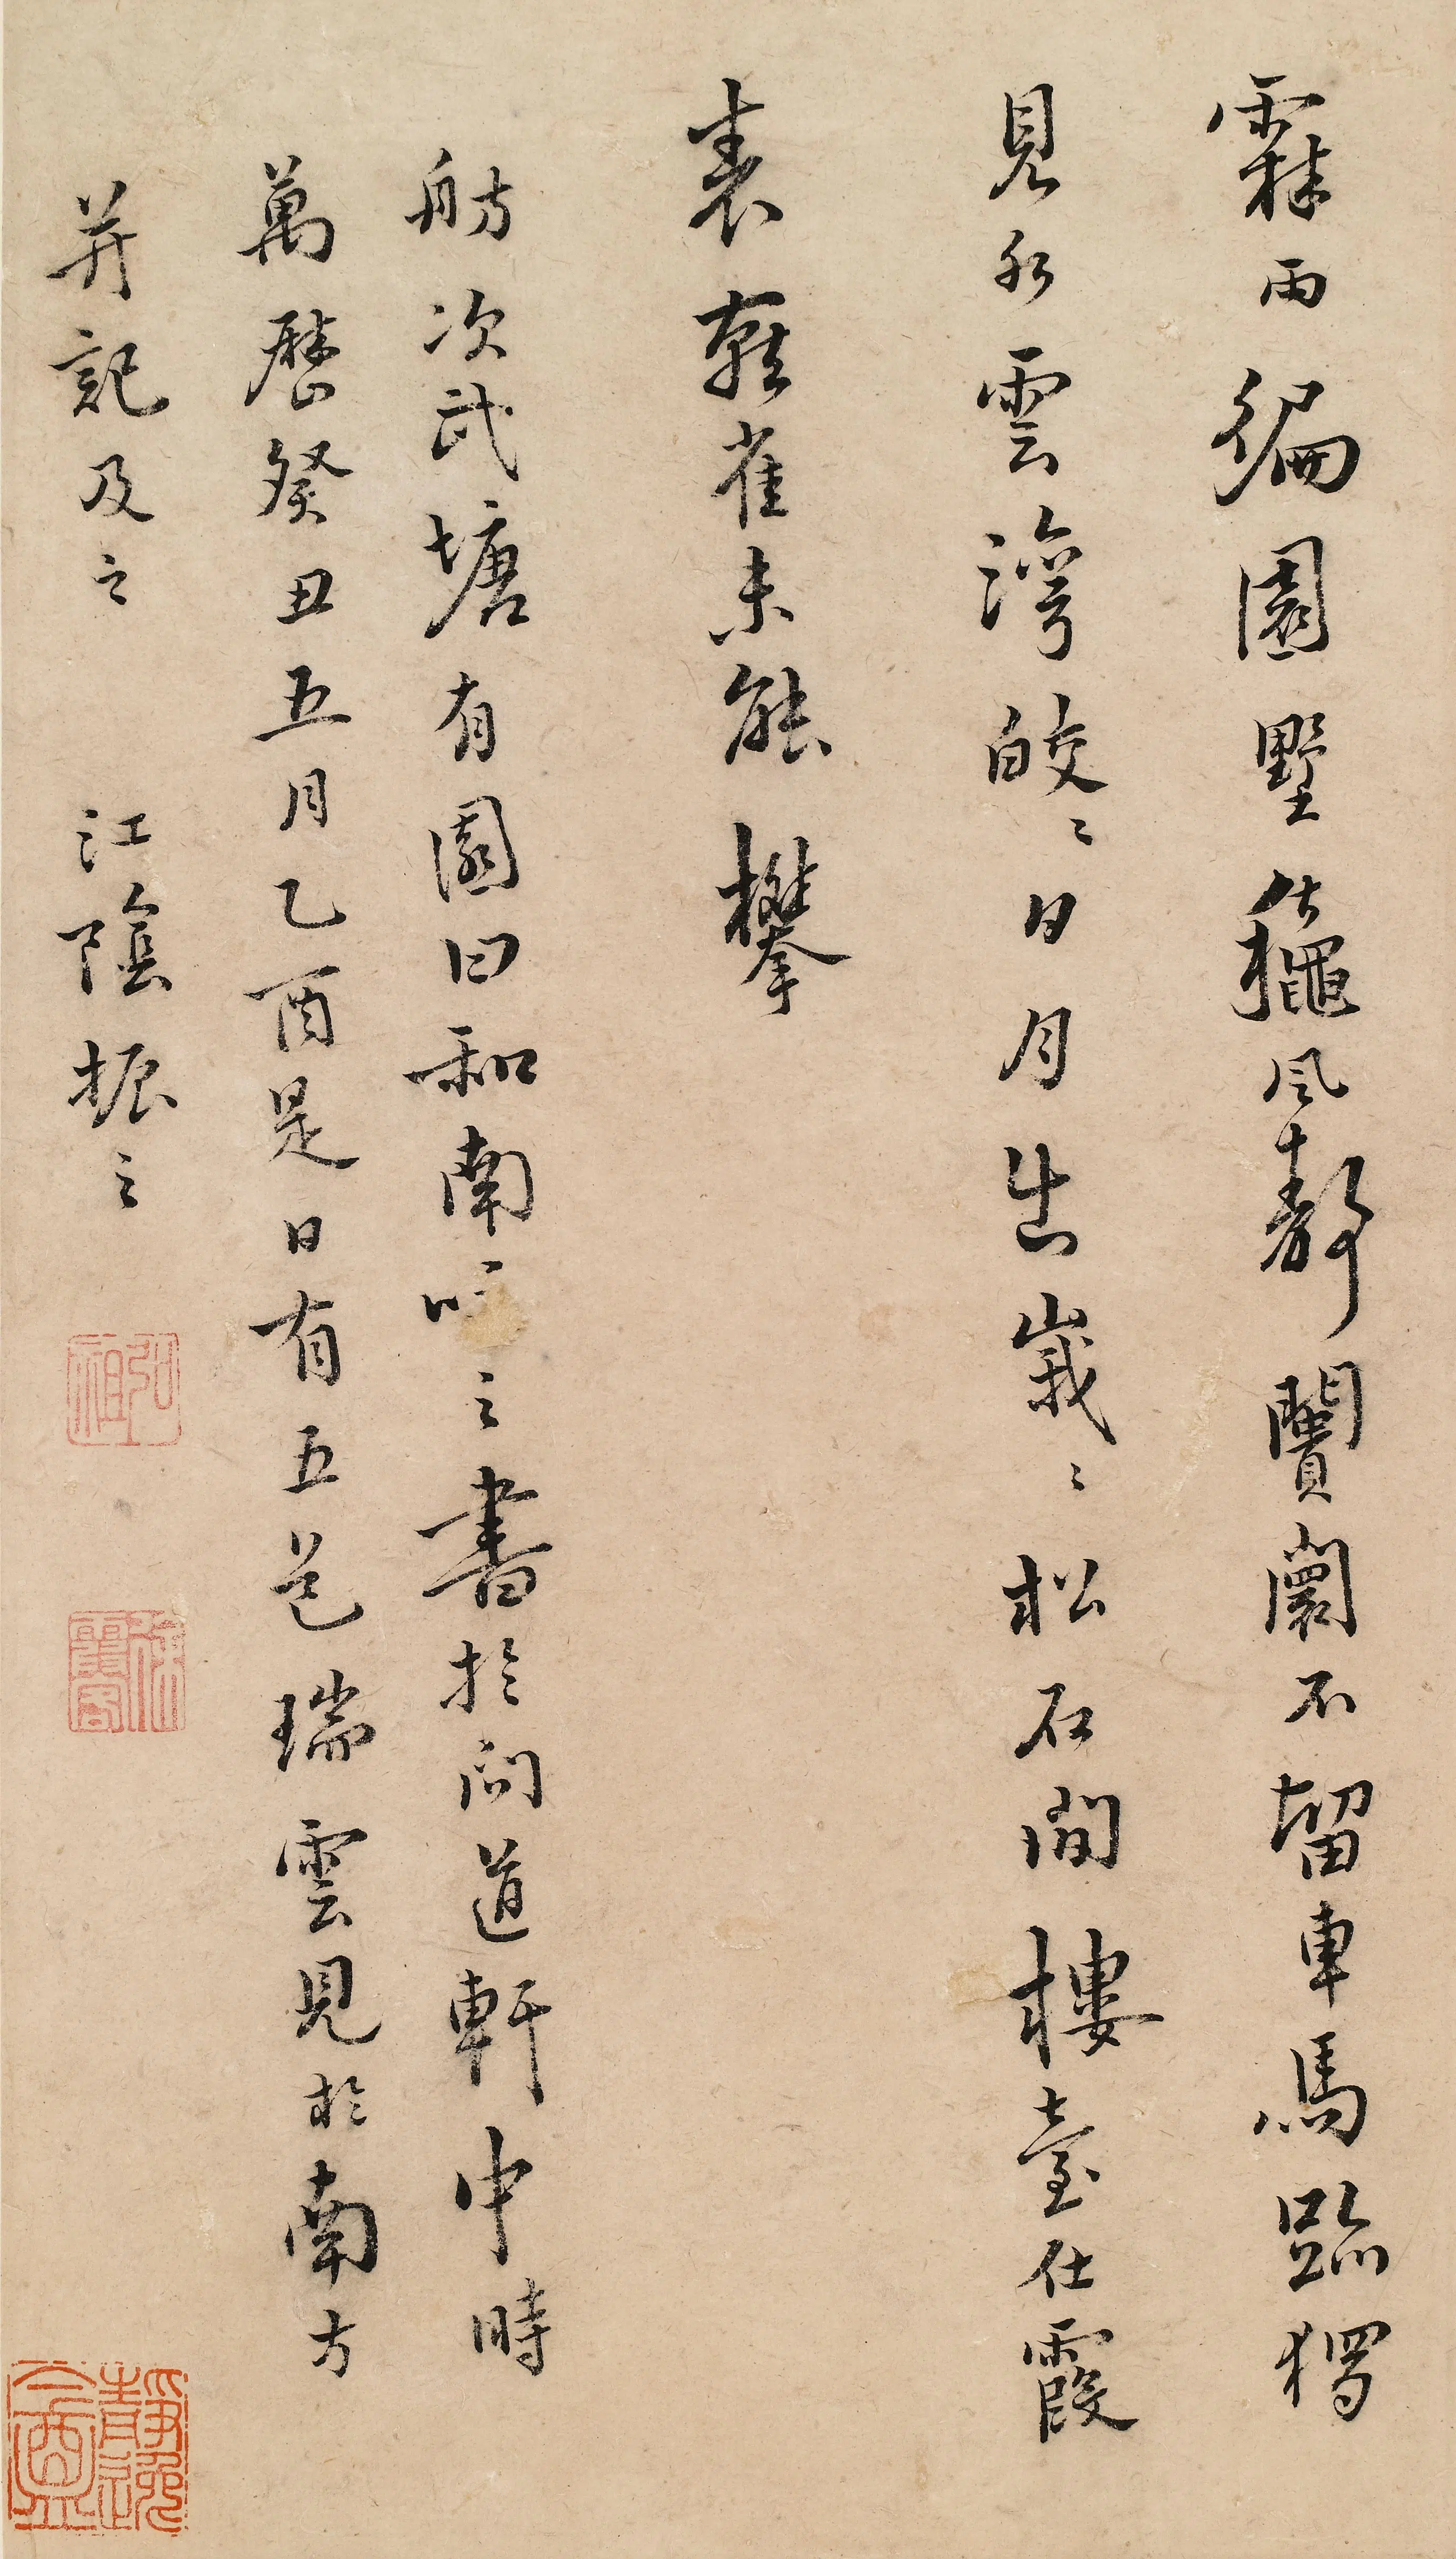 霖雨徧園墅龝風靜闠闤不留車馬跡獨
見水雲灣皎〻日月出峩〻松石間樓臺仕霞
表鸛雀未能攀
舫次武塘有園曰和南咏之書於問道軒中時
萬曆癸丑五月乙酉是日有五色瑞雲見於南方
并記及之　江陰振之
弘祖
徐霞客